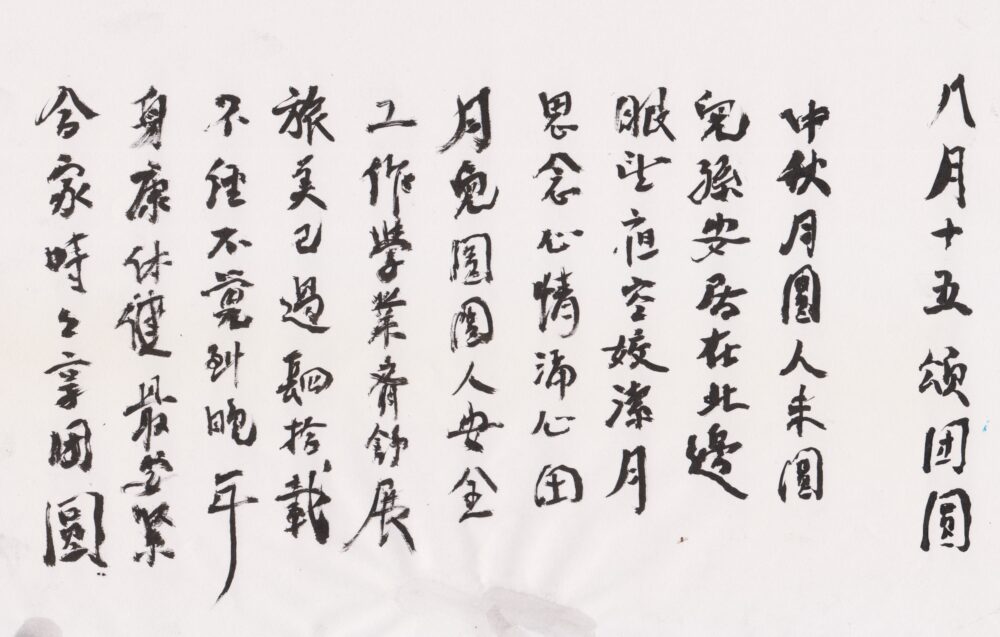 八月十五颂团圆
仲秋月圓人未圓
兒孫安居在北邊
眼望夜空姣潔月
思念心情涌心田
月兔圖圓人安全
工作學業齊舒展
旅美已過四拾載
不經不覺到晚年
身康体健最要緊
合家時々享团圓